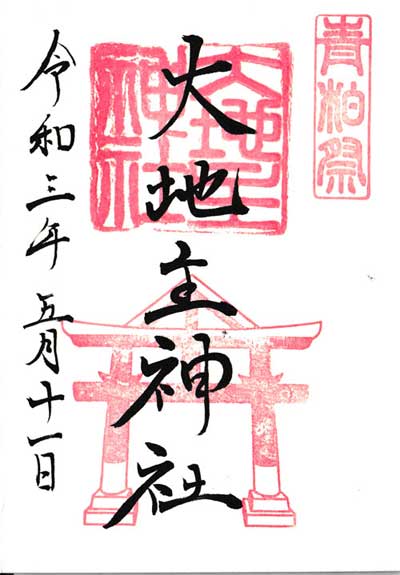 青柏祭
大地主神社
大地主神社
令和三年五月十一日